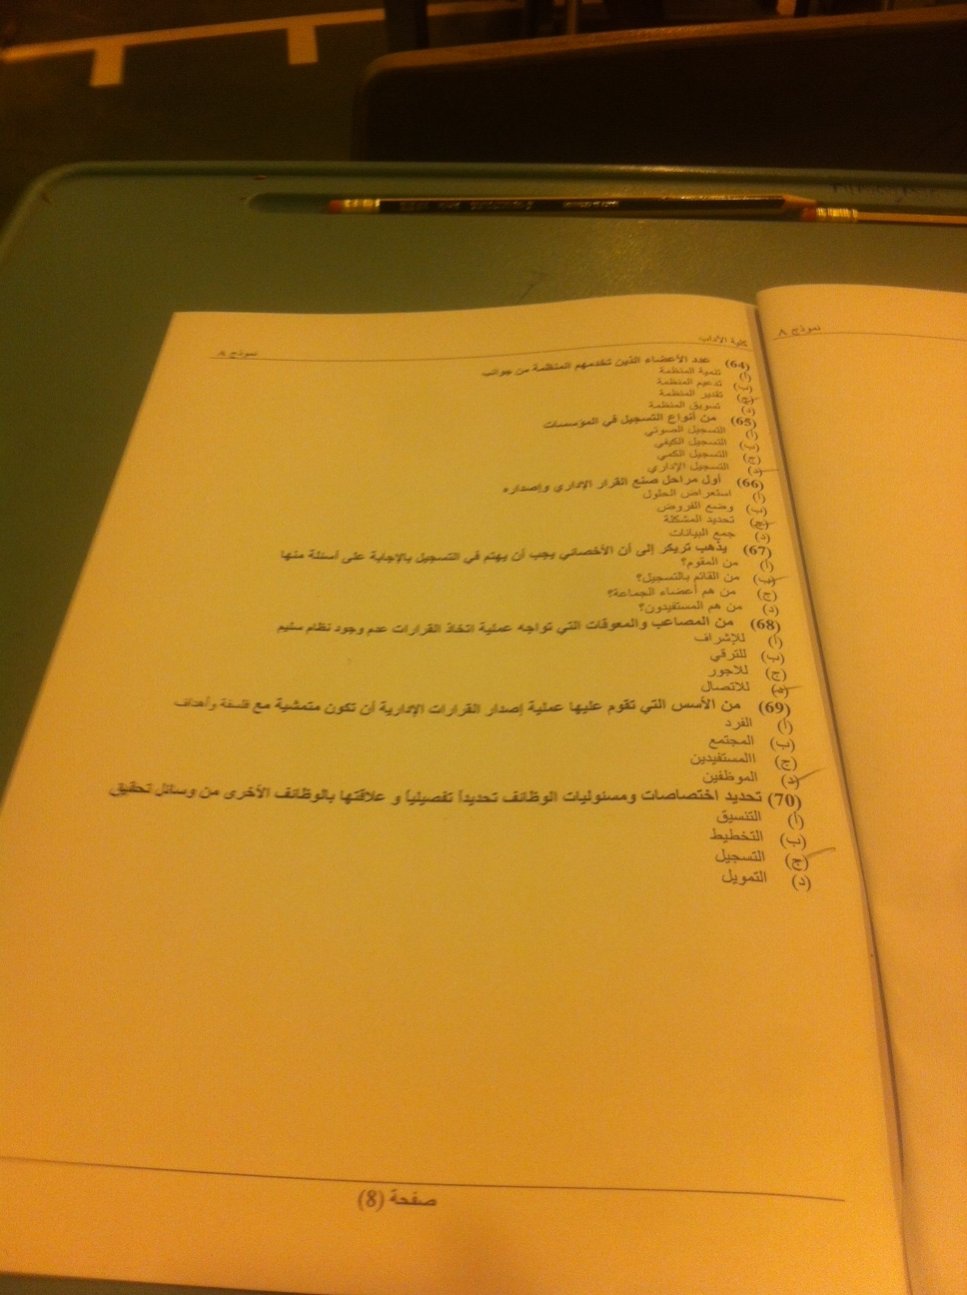 كلية الآداب نموذج A
(64) عدد الأعضاء الذين تخدمهم المنظمة من جوانب
(أ) تنمية المنظمة
(ب) تدعيم المنظمة
(ج) تقدير المنظمة
(د) تسويق المنظمة
(65) من أنواع التسجيل في المؤسسات
(أ) التسجيل الصوتي
(ب) التسجيل الكيفي
(ج) التسجيل الكمي
(د) التسجيل الإداري
(66) أول مراحل صنع القرار الإداري وإصداره
(أ) استعراض الحلول
(ب) وضع الفروض
(ج) تحديد المشكلة
(د) جمع البيانات
(67) يذهب تريكر إلى أن الأخصائي يجب أن يهتم في التسجيل بالإجابة على أسئلة منها
(أ) من المقوم؟
(ب) من القائم بالتسجيل؟
(ج) من هم أعضاء الجماعة؟
(د) من هم المستفيدون؟
(68) من المصاعب والمعوقات التي تواجه عملية اتخاذ القرارات عدم وجود نظام سليم
(أ) للإشراف
(ب) للترقي
(ج) للاجور
(د) للاتصال
(69) من الأسس التي تقوم عليها عملية إصدار القرارات الإدارية أن تكون متمشية مع فلسفة وأهداف
(أ) الفرد
(ب) المجتمع
(ج) االمستفيدين
(د) الموظفين
(70) تحديد اختصاصات ومسئوليات الوظائف تحديداً تفصيلياً و علاقتها بالوظائف الأخرى من وسائل تحقيق
(أ) التنسيق
(ب) التخطيط
(ج) التسجيل
(د) التمويل
صفحة (8)
نموذج A